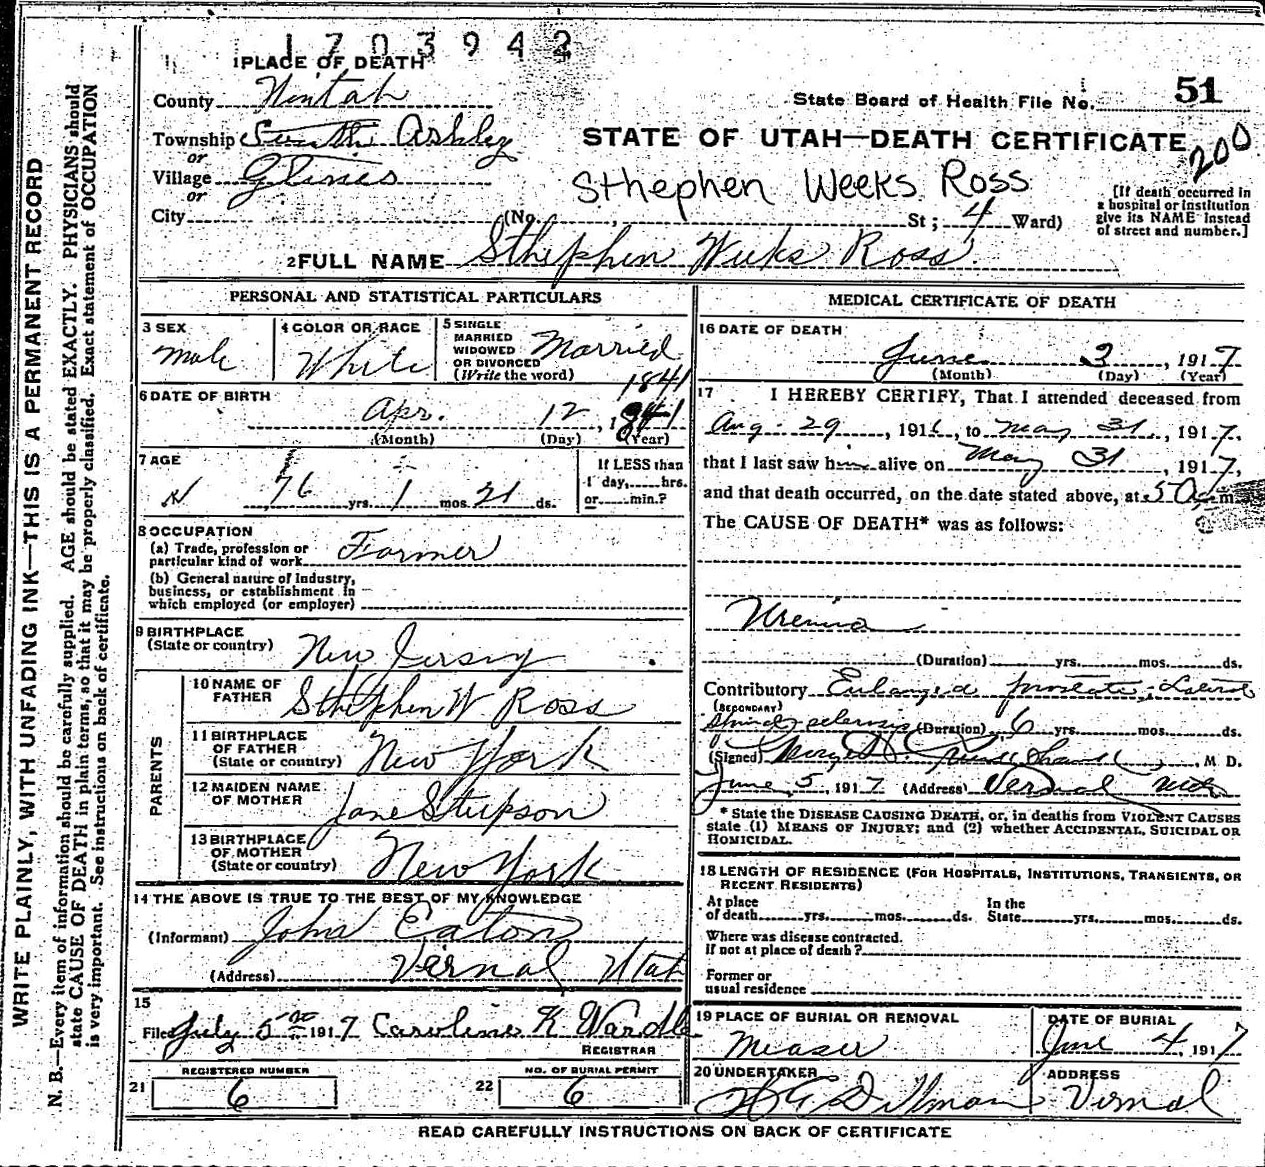 1703942
1 PLACE OF DEATH
County Uintah
State Board of Health File No. 51
Township South Ashley
STATE OF UTAH—DEATH CERTIFICATE
200
or
Village Glines
Sthephen Weeks Ross
or
City (No. , St; 4 Ward)
[If death occurred in
a hospital or institution
give its NAME instead
of street and number.]
2 FULL NAME Sthephen Weeks Ross
PERSONAL AND STATISTICAL PARTICULARS
3 SEX
Male
4 COLOR OR RACE
White
5 SINGLE
MARRIED
WIDOWED
OR DIVORCED
(Write the word)
Married
1841
6 DATE OF BIRTH
Apr. 12, 1841
(Month) (Day) (Year)
7 AGE
76 yrs. 1 mos. 21 ds.
If LESS than
1 day, hrs.
or min.?
8 OCCUPATION
(a) Trade, profession or
particular kind of work Farmer
(b) General nature of Industry,
business, or establishment in
which employed (or employer)
9 BIRTHPLACE
(State or country) New Jersey
PARENTS
10 NAME OF
FATHER Sthephen W Ross
11 BIRTHPLACE
OF FATHER
(State or country) New York
12 MAIDEN NAME
OF MOTHER Jane Stimpson
13 BIRTHPLACE
OF MOTHER
(State or country) New York
14 THE ABOVE IS TRUE TO THE BEST OF MY KNOWLEDGE
(Informant) John Eaton
(Address) Vernal Utah
15
Filed July 5 1917 Caroline K Wardle
REGISTRAR
REGISTERED NUMBER
21 6
NO. OF BURIAL PERMIT
22 6
MEDICAL CERTIFICATE OF DEATH
16 DATE OF DEATH
June 3, 1917
(Month) (Day) (Year)
17 I HEREBY CERTIFY, That I attended deceased from
Aug. 29, 1916, to May 31, 1917,
that I last saw him alive on May 31, 1917,
and that death occurred, on the date stated above, at 5 a. m
The CAUSE OF DEATH* was as follows:
Uremia
(Duration) yrs. mos. ds.
Contributory Enlarged prostate; Lateral
(SECONDARY)
spinal sclerosis (Duration) 6 yrs. mos. ds.
(Signed) M D.
June 5, 1917 (Address) Vernal Utah
* State the DISEASE CAUSING DEATH, or, in deaths from VIOLENT CAUSES
state (1) MEANS OF INJURY; and (2) whether ACCIDENTAL, SUICIDAL OR
HOMICIDAL.
18 LENGTH OF RESIDENCE (FOR HOSPITALS, INSTITUTIONS, TRANSIENTS, OR
RECENT RESIDENTS)
At place
of death yrs. mos. ds.
In the
State yrs. mos. ds.
Where was disease contracted.
If not at place of death?
Former or
usual residence
19 PLACE OF BURIAL OR REMOVAL
Measer
DATE OF BURIAL
June 4, 1917
20 UNDERTAKER
Dillman
ADDRESS
Vernal
READ CAREFULLY INSTRUCTIONS ON BACK OF CERTIFICATE
WRITE PLAINLY, WITH UNFADING INK—THIS IS A PERMANENT RECORD
N. B.—Every item of information should be carefully supplied. AGE should be stated EXACTLY. PHYSICIANS should
state CAUSE OF DEATH in plain terms, so that it may be properly classified. Exact statement of OCCUPATION
is very important. See instructions on back of certificate.